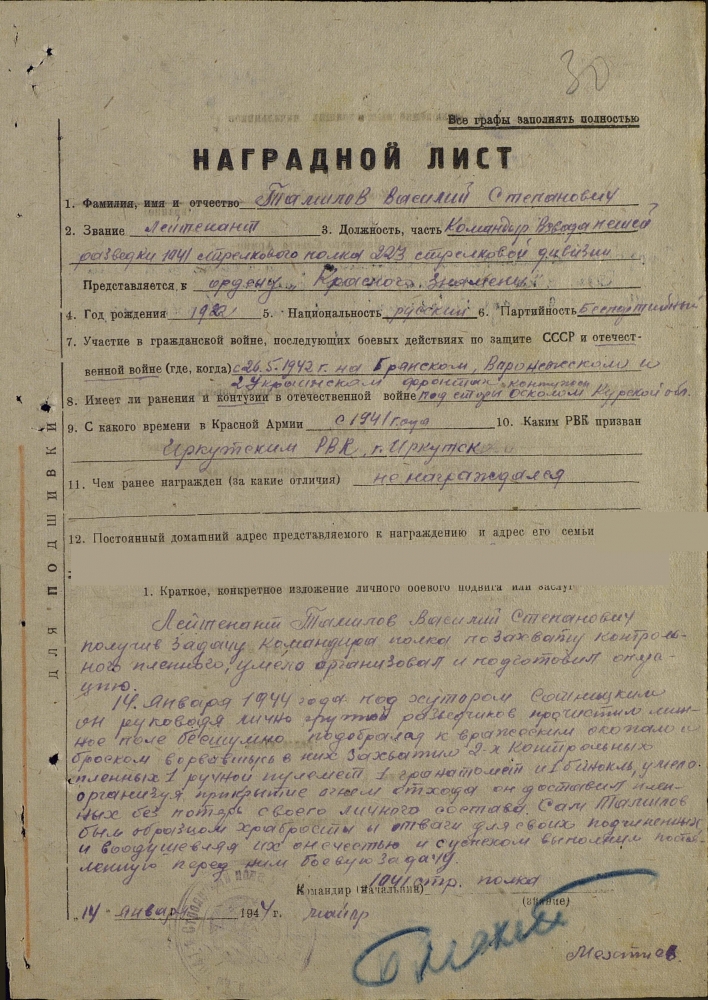 30
Все графы заполнять полностью
НАГРАДНОЙ ЛИСТ
1. Фамилия, имя и отчество Тамилов Василий Степанович
2. Звание Лейтенант 3. Должность, часть Командир взвода пешей
разведки 1041 стрелкового полка 223 стрелковой дивизии
Представляется к ордену "Красного Знамени"
4. Год рождения 1922 5. Национальность русский 6. Партийность Беспартийный
7. Участие в гражданской войне, последующих боевых действиях по защите СССР и отечест-
венной войне (где, когда) с 26.5.1942 г. на Брянском, Воронежском и
2 Украинском фронтах
8. Имеет ли ранения и контузии в отечественной войне контужен под Стары Осколом Курской обл.
9. С какого времени в Красной Армии с 1941 года 10. Каким РВК призван
Иркутским РВК, г. Иркутск
11. Чем ранее награжден (за какие отличия) не награждался
12. Постоянный домашний адрес представляемого к награждению и адрес его семьи
1. Краткое, конкретное изложение личного боевого подвига или заслуг
Лейтенант Тамилов Василий Степанович
получив задачу командира полка по захвату контроль-
ного пленного, умело организовал и подготовил опера-
цию.
14 Января 1944 года под хутором
он руководя лично группой разведчиков прочистил мин-
ное поле бесшумно подобрался к вражеским окопам и
броском ворвавшусь в них захватил 2-х контрольных
пленных 1 ручной пулемет 1 гранатомет и 1 бинокль, умело
организуя прикрытие огнем отхода он доставил плен-
ных без потерь своего личного состава. Сам Тамилов
был образцом храбрости и отваги для своих подчиненных
и воодушевляя их он с честью и успехом выполнил постав-
ленную перед ним боевую задачу.
Командир (начальник) 1041 стр. полка
(звание)
"14" январ 1944 г. майор
ДЛЯ ПОДШИВКИ